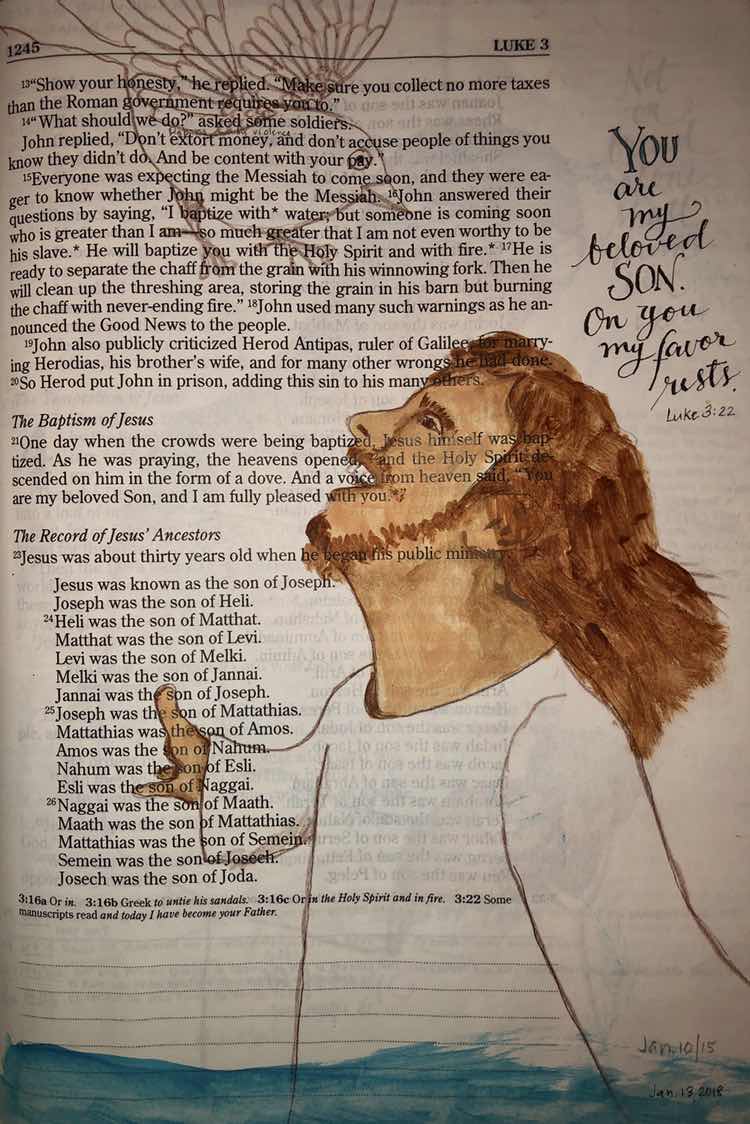 1245
LUKE 3
13“Show your honesty,” he replied. “Make sure you collect no more taxes
than the Roman government requires you to.”
14“What should we do?” asked some soldiers.
John replied, “Don’t extort money, and don’t accuse people of things you
know they didn’t do. And be content with your pay.”
15Everyone was expecting the Messiah to come soon, and they were ea-
ger to know whether John might be the Messiah. 16John answered their
questions by saying, “I baptize with* water; but someone is coming soon
who is greater than I am—so much greater that I am not even worthy to be
his slave.* He will baptize you with the Holy Spirit and with fire.* 17He is
ready to separate the chaff from the grain with his winnowing fork. Then he
will clean up the threshing area, storing the grain in his barn but burning
the chaff with never-ending fire.” 18John used many such warnings as he an-
nounced the Good News to the people.
19John also publicly criticized Herod Antipas, ruler of Galilee, for marry-
ing Herodias, his brother’s wife, and for many other wrongs he had done.
20So Herod put John in prison, adding this sin to his many others.
The Baptism of Jesus
21One day when the crowds were being baptized, Jesus himself was bap-
tized. As he was praying, the heavens opened, 22and the Holy Spirit de-
scended on him in the form of a dove. And a voice from heaven said, “You
are my beloved Son, and I am fully pleased with you.*”
The Record of Jesus’ Ancestors
23Jesus was about thirty years old when he began his public ministry.
Jesus was known as the son of Joseph.
Joseph was the son of Heli.
24Heli was the son of Matthat.
Matthat was the son of Levi.
Levi was the son of Melki.
Melki was the son of Jannai.
Jannai was the son of Joseph.
25Joseph was the son of Mattathias.
Mattathias was the son of Amos.
Amos was the son of Nahum.
Nahum was the son of Esli.
Esli was the son of Naggai.
26Naggai was the son of Maath.
Maath was the son of Mattathias.
Mattathias was the son of Semein.
Semein was the son of Josech.
Josech was the son of Joda.
3:16a Or in. 3:16b Greek to untie his sandals. 3:16c Or in the Holy Spirit and in fire. 3:22 Some
manuscripts read and today I have become your Father.
YOU
are
my
beloved
SON.
On you
my favor
rests.
Luke 3:22
Jan.10/15
Jan.13.2018